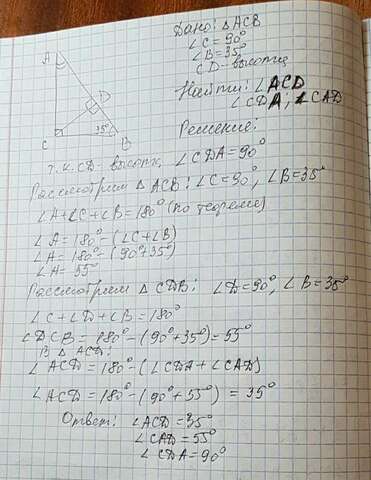 Дано: △ ACB
∠C = 90°
∠B = 35°
CD - высота
Найти: ∠ACD
∠CDA; ∠CAD
Решение:
A
D
C
35°
B
т.к. CD - высота, ∠CDA = 90°
Рассмотрим △ ACB: ∠C = 90°, ∠B = 35°
∠A + ∠C + ∠B = 180° (по теореме)
∠A = 180° - (∠C + ∠B)
∠A = 180° - (90° + 35°)
∠A = 55°
Рассмотрим △ CDB: ∠D = 90°, ∠B = 35°
∠C + ∠D + ∠B = 180°
∠DCB = 180° - (90° + 35°) = 55°
В △ ACD:
∠ACD = 180° - (∠CDA + ∠CAD)
∠ACD = 180° - (90° + 55°) = 35°
Ответ: ∠ACD = 35°
∠CAD = 55°
∠CDA = 90°